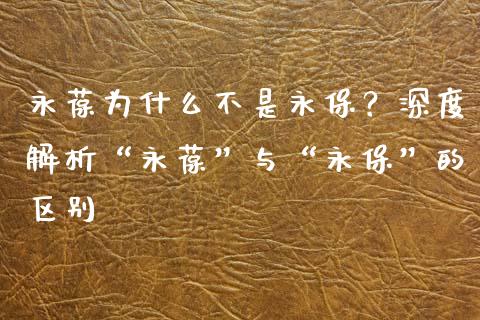 永葆为什么不是永保？深度
解析“永葆”与“永保”的
区别